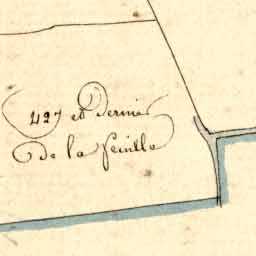 427 et Dernier
de la feuille